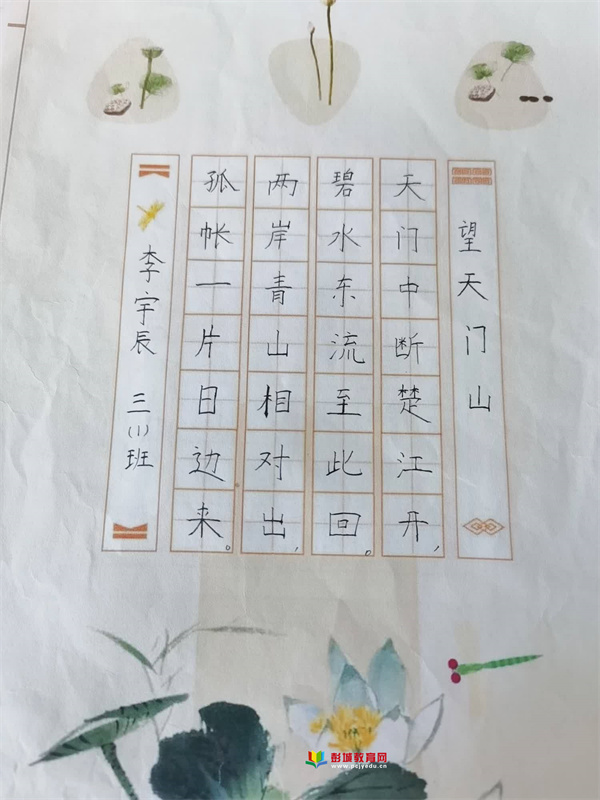 望天门山
天门中断楚江开,
碧水东流至此回。
两岸青山相对出,
孤帐一片日边来。
李宇辰 三(1)班
彭城教育网
www.pcjyedu.cn